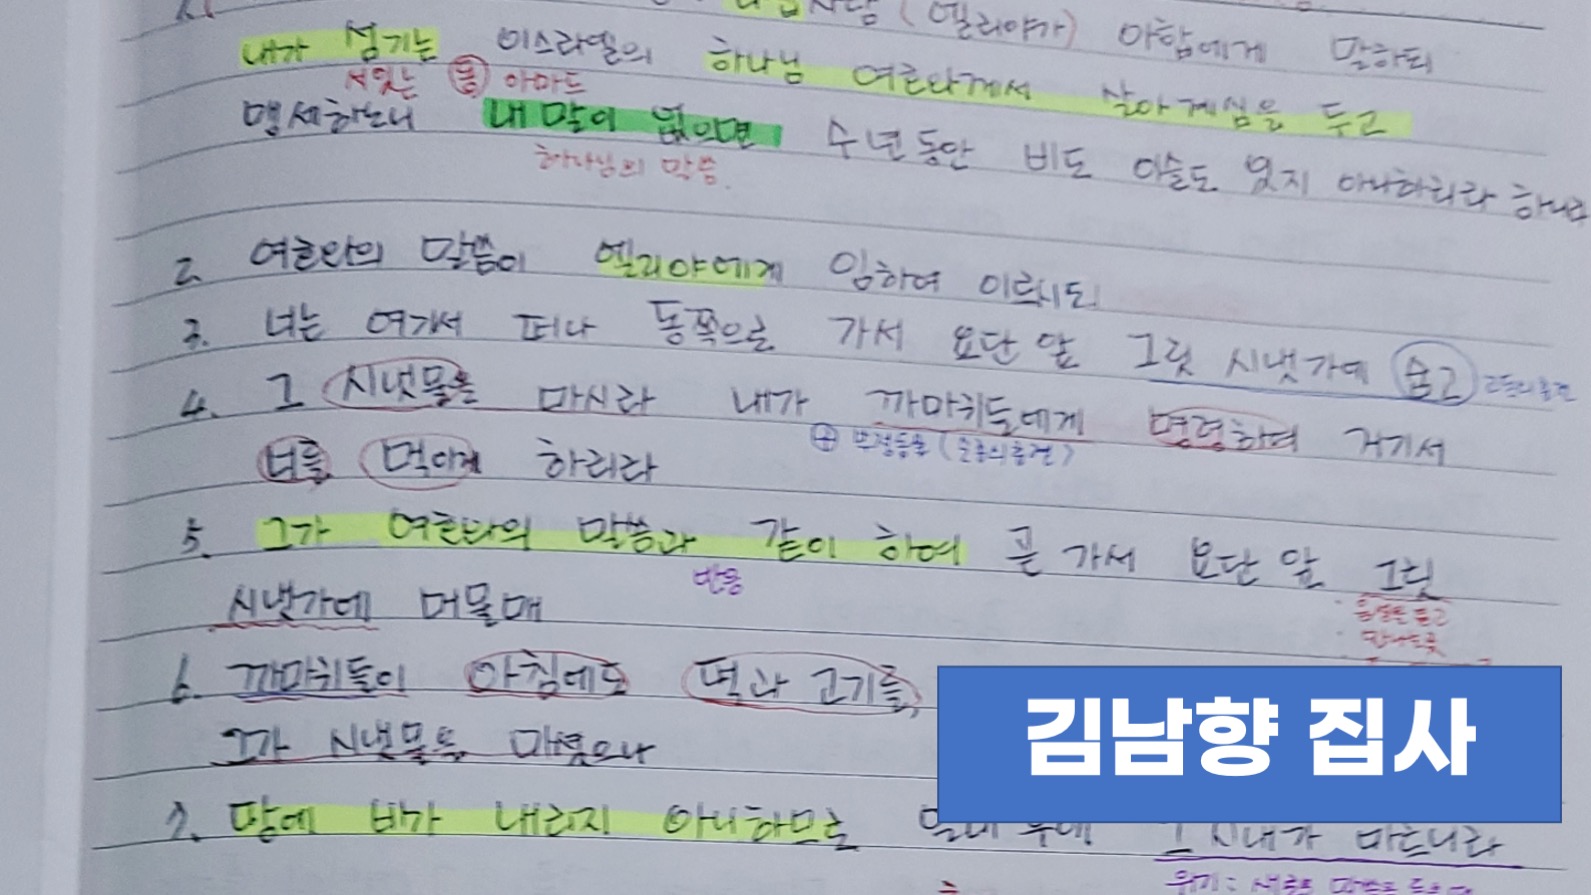 사람 (엘리야가) 아합에게 말하되
내가 섬기는 이스라엘의 하나님 여호와께서 살아 계심을 두고
서있는 아마드
맹세하노니 내 말이 없으면 수 년 동안 비도 이슬도 있지 아니하리라 하니라
하나님의 말씀.
2. 여호와의 말씀이 엘리야에게 임하여 이르시되
3. 너는 여기서 떠나 동쪽으로 가서 요단 앞 그릿 시냇가에 숨고
4. 그 시냇물을 마시라 내가 까마귀들에게 명령하여 거기서
너를 먹이게 하리라
5. 그가 여호와의 말씀과 같이 하여 곧 가서 요단 앞 그릿
반응
시냇가에 머물매
6. 까마귀들이 아침에도 떡과 고기를,
그가 시냇물을 마셨으나
김남향 집사
7. 땅에 비가 내리지 아니하므로 그 시내가 마르니라
위기: